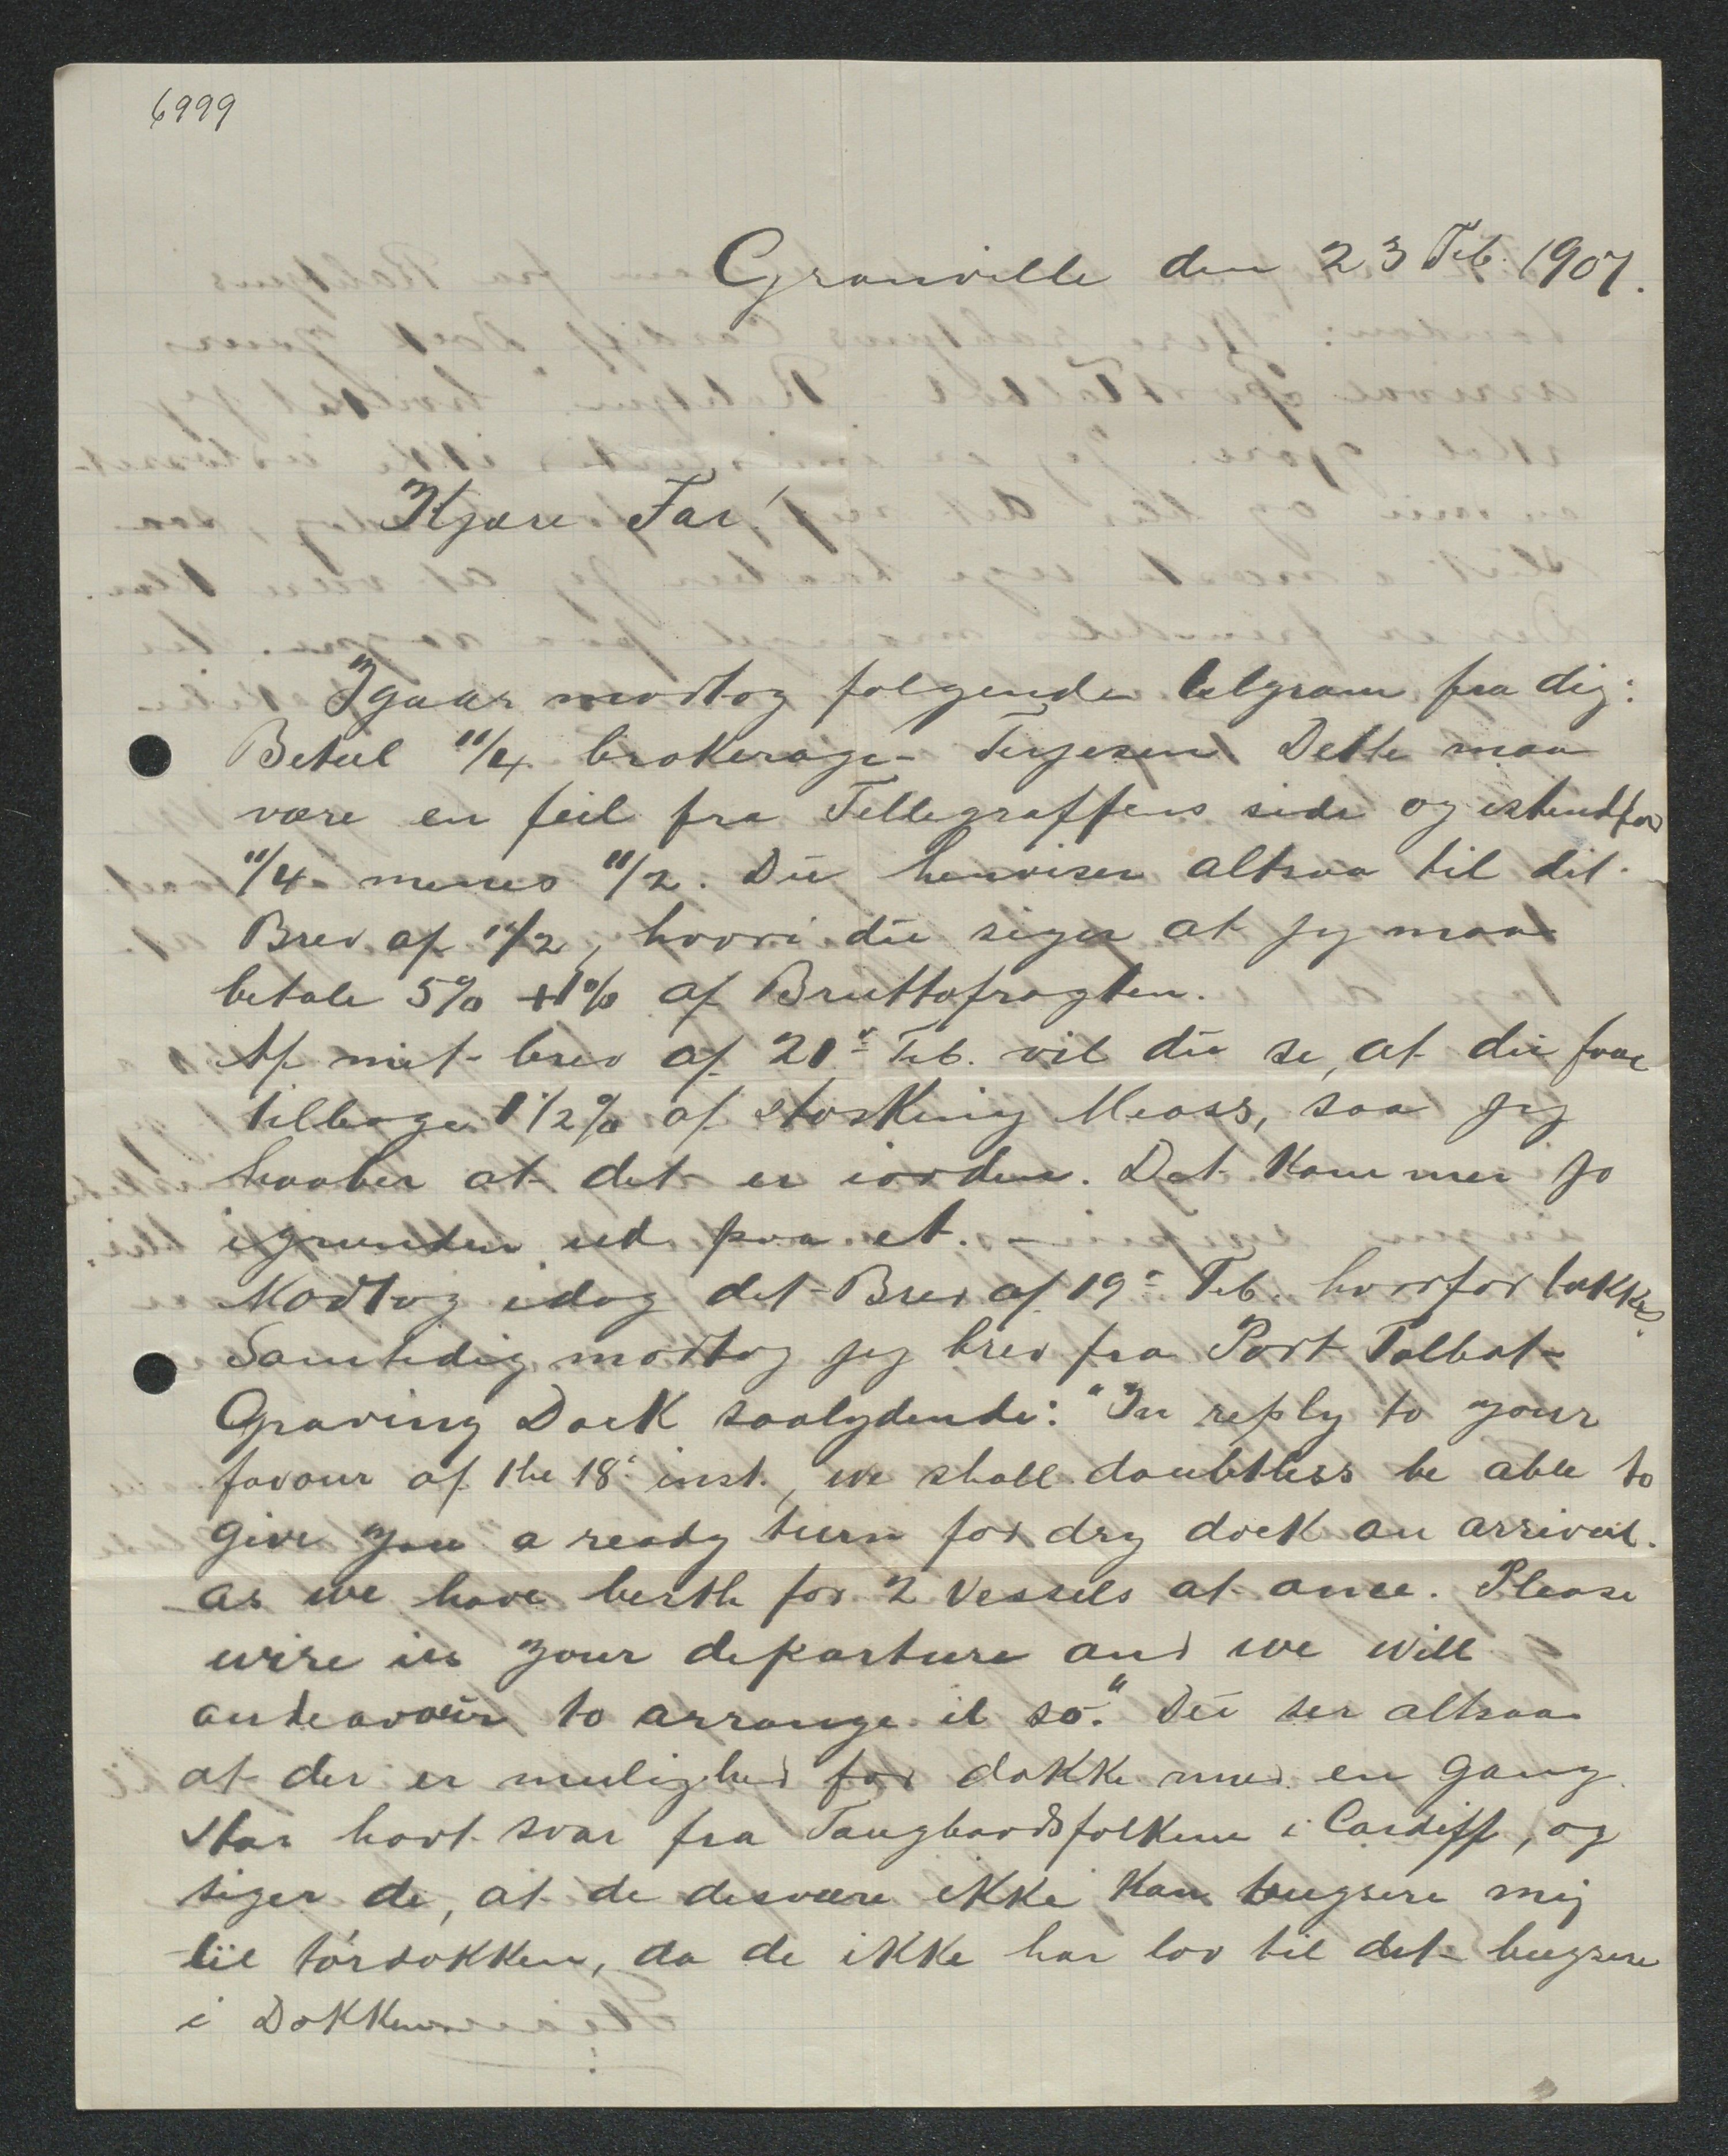 6999
Granville den 23 Feb. 1907.
Kjære Far!
Igaar modtog følgende telgram fra dig:
Betal 11/4 brokerage - Terjesen. Dette maa
være en feil fra Tellegraffens side og istendfor
11/4 menes 11/2. Du henviser altsaa til dit
Brev af 11/2, hvori du siger at jeg maa
betale 5% + 1% af Bruttofragten.
Af mit brev af 21de Feb. vil du se, at du faar
tilbage 1 1/2% af Hosking Meass, saa jeg
haaber at det er iorden. Det kommer jo
igrunden ud paa et. —
Modtog idag dit Brev af 19de Feb. hvorfor takkes.
Samtidig modtog jeg brev fra Port Talbot
Graving Dock saalydende: "In reply to your
favour of the 18th inst., we shall doubtless be able to
give you a ready turn for dry dock on arrival.
as we have berth for 2 Vessels at once. Please
wire us your departure and we will
endeavour to arrange it so." Du ser altsaa
at der er mulighed for dokke med en gang.
Har havt svar fra Taugbaadsfolkene i Cardiff, og
siger de, at de desvære ikke kan bugsere mig
til tørdokken, da de ikke har lov til det bugsere
i Dokken.